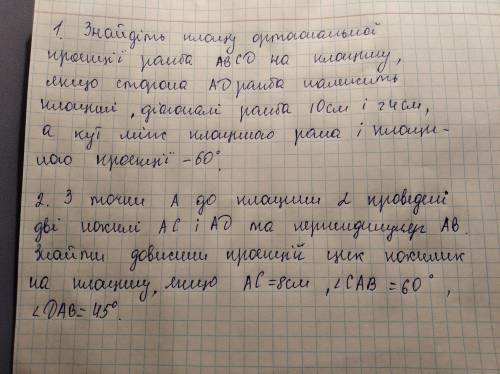 1. Знайдіть площу ортогональної
проекції ромба ABCD на площину,
якщо сторона AD ромба належить
площині, діагоналі ромба 10см і 24см,
а кут між площиною ромба і площи-
ною проекції – 60°.
2. З точки А до площини α проведені
дві похилі АС і АD та перпендикуляр АВ.
Знайти довжини проекцій цих похилих
на площину, якщо АС = 8см, ∠САВ = 60°,
∠DАВ = 45°.